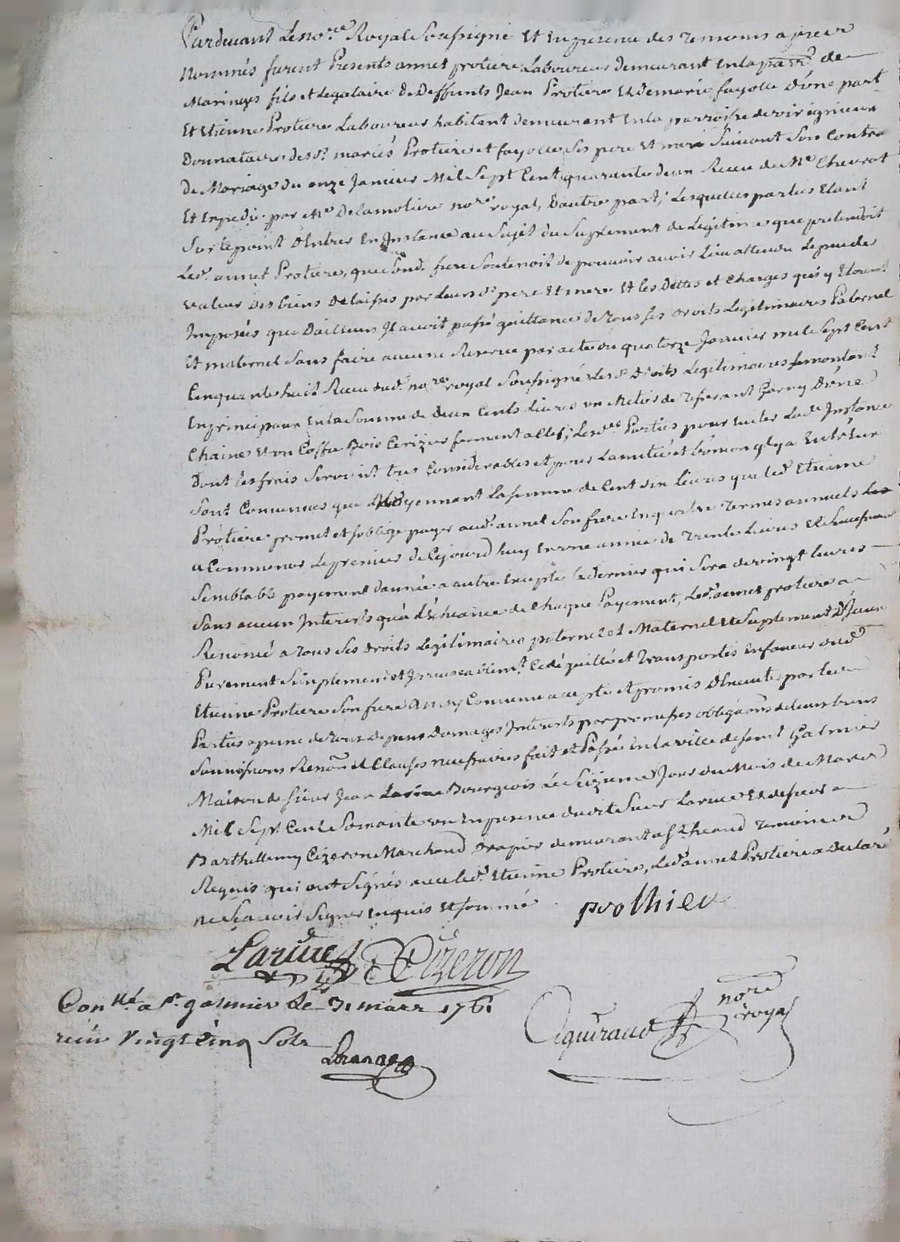 Pardevant Le no.re Royal Soussigné Et En presence des Temoins apres
Nommés furent Presents annet protiere Laboureur demeurant En la parr.e de
Maringes fils et Legataire de Deffunts Jean Protiere Et de marie fayolle d'une part
Et Etienne Protiere Laboureur habitant demeurant En la parroisse de
Donnataire desd.s mariés Protiere et fayolle Ses pere Et mere Suivant Son Contra
de Mariage du onze Janvier Mil Sept Cent quarante deux Reçu de M.e Chevrot
Et Expedié par M.e Delamotiere no.re royal, D'autre part; Lesquelles parties Etant
Sur le point d'Entrer En Instance au Sujet du Suplement de Legitime que pretendoit
Led. annet Protiere, que Sond. frere Soutenoit ne pouvoir avoir Lieu attendu Le peu de
valeur des biens Delaissés par Leurs d.s pere Et mere Et les Dettes et Charges qui y Etoient
Imposées que D'ailleurs Il auroit passé quittance de tous ses droits Legitimaires Paternel
Et maternel Sans faire aucune Reserve par acte du quatorze Janvier mil Sept Cent
Cinquante huit Reçu dud. no.re royal Soussigné Lesd. Droits Legitimaires Se montent
En principaux En la Somme de Deux Cents Livres un Metier de Garny D'une
Chaine Et un Coffre Bois Cerizier fermant a Clef; Lesd.es Parties pour Eviter Lad. Instance
Dont les frais Seroient tres Considerables et pour L'amitié et qu'il y a Entr'Eux
Sont Convenues que Moyennant La Somme de Cent dix Livres que led. Etienne
Protiere promet et s'oblige payer aud. annet Son frere En quatre Termes annuels
a Commencer Le premier de Cejourd'huy En une année de Trente Livres Et
Semblable payement d'année a autre Excepté Le dernier qui Sera de vingt Livres
Sans aucun Interets qu'a L'Echeance de Chaque Payement, Led. annet protiere a
Renoncé a tous Ses Droits Legitimaires paternel et Maternel Et Suplement D'Iceux
Purement Simplement et Irrevocablem.t Cedé quitté et Transportés En faveur dud.
Etienne Protiere Son frere Ainsy Convenu accepté et promis Observer par les
Parties a peine de tous Depens Domages Interets par promesses obligaõns de leurs biens
Soumissions Renonõn et Clauses necessaires fait et Passé En la ville de Saint Galmier
Maison de Sieur Jean Larüe Bourgeois Le Seizieme Jour du Mois de Mars
Mil Sept Cent Soixante un En presence dud. Sieur Larüe Et de Sieur
Barthellemy Cizeron Marchand Drapier demeurant a St Temoins
Requis qui ont Signés avec led. Etienne Protiere, Led. annet Protiere a Declaré
ne Sçavoir Signer Enquis Et Sommé. prothiere
Larüe Cizeron
Con.llé a St. galmier Le 31 mars 1761
reçu Vingt Cinq Sols
no.re royal